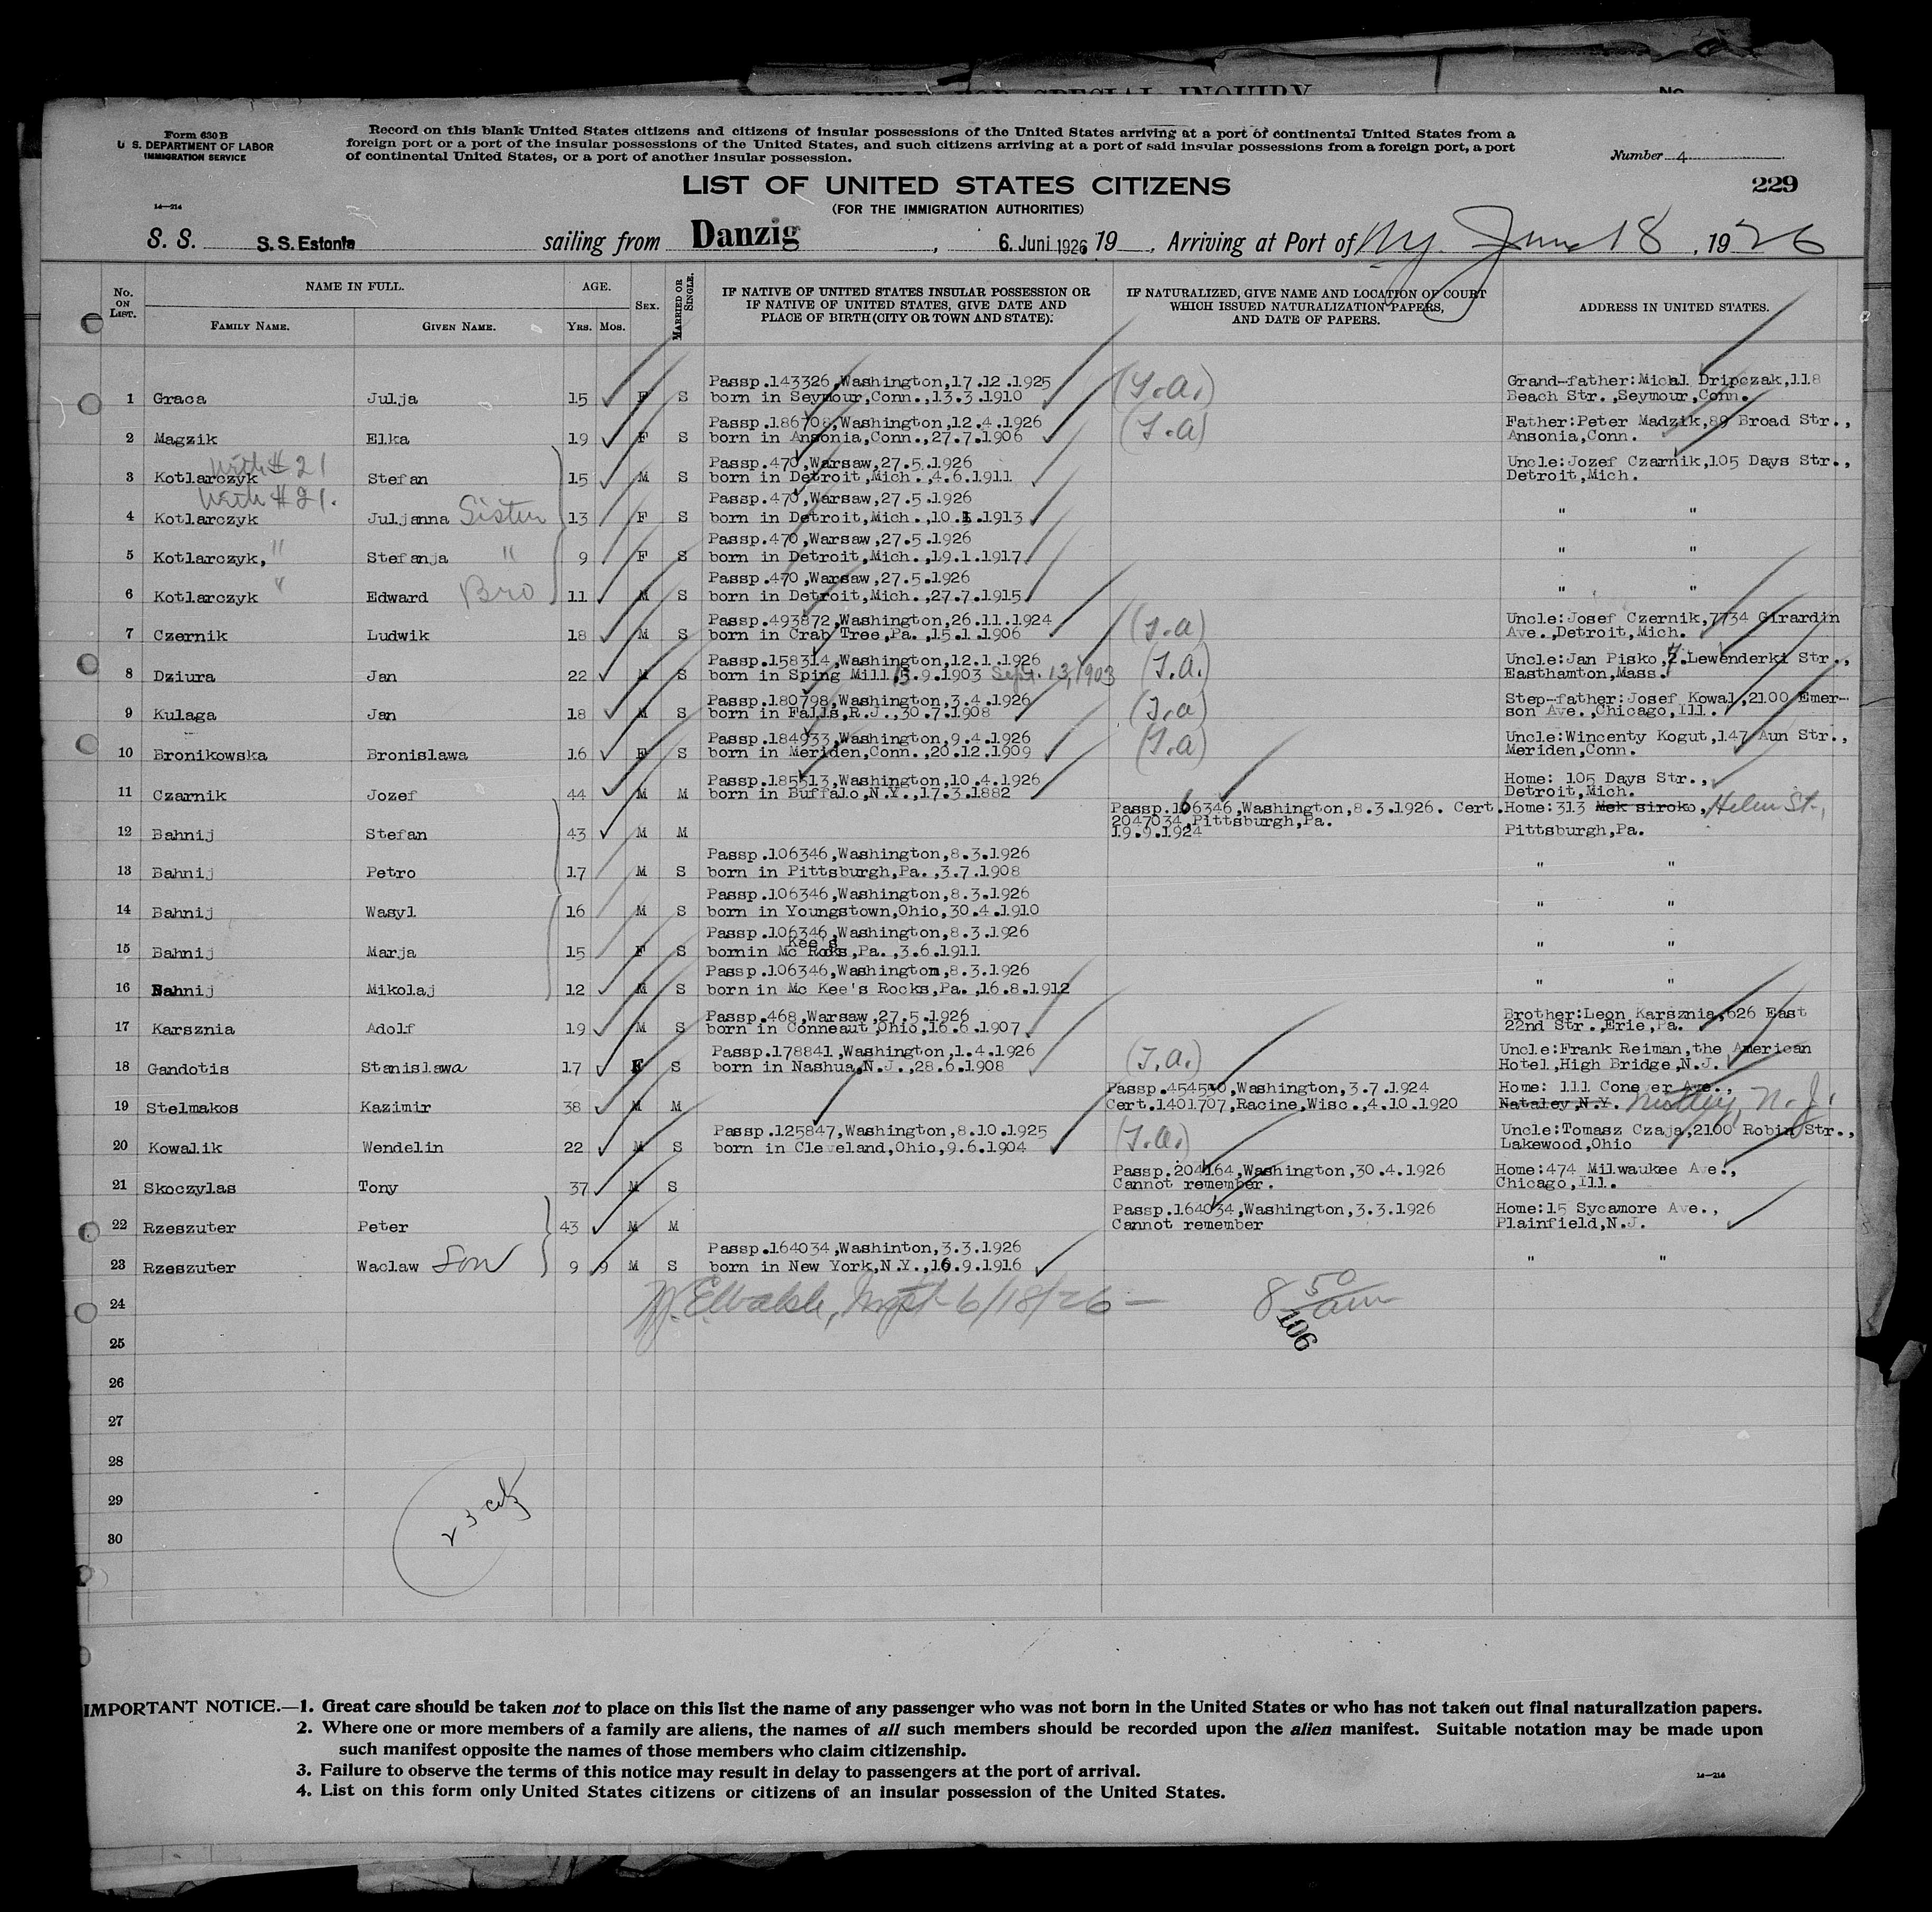 SPECIAL INQUIRY
No.
Form 630 B
U. S. DEPARTMENT OF LABOR
IMMIGRATION SERVICE
14—214
Record on this blank United States citizens and citizens of insular possessions of the United States arriving at a port of continental United States from a
foreign port or a port of the insular possessions of the United States, and such citizens arriving at a port of said insular possessions from a foreign port, a port
of continental United States, or a port of another insular possession.
Number 4
229
LIST OF UNITED STATES CITIZENS
(FOR THE IMMIGRATION AUTHORITIES)
S. S. S.S. Estonia sailing from Danzig, 6. Juni 1926 19 , Arriving at Port of N.Y. June 18, 1926
No. ON LIST. NAME IN FULL. FAMILY NAME. GIVEN NAME. AGE. YRS. MOS. SEX. MARRIED OR SINGLE.
IF NATIVE OF UNITED STATES INSULAR POSSESSION OR
IF NATIVE OF UNITED STATES, GIVE DATE AND
PLACE OF BIRTH (CITY OR TOWN AND STATE).
IF NATURALIZED, GIVE NAME AND LOCATION OF COURT
WHICH ISSUED NATURALIZATION PAPERS,
AND DATE OF PAPERS.
ADDRESS IN UNITED STATES.
Passp.143326,Washington,17.12.1925 Grand-father:Michal Dripczak,118
1 Graca Julja 15 F S born in Seymour,Conn.,13.3.1910 Beach Str.,Seymour,Conn.
Passp.186708,Washington,12.4.1926 Father:Peter Madzik,89 Broad Str.,
2 Magzik Elka 19 F S born in Ansonia,Conn.,27.7.1906 Ansonia,Conn.
with #21 Passp.470,Warsaw,27.5.1926 Uncle:Jozef Czarnik,105 Days Str.,
3 Kotlarczyk Stefan 15 M S born in Detroit,Mich.,4.6.1911 Detroit,Mich.
with #21. Passp.470,Warsaw,27.5.1926
4 Kotlarczyk Juljanna Sister 13 F S born in Detroit,Mich.,10.1.1913 " "
Passp.470,Warsaw,27.5.1926
5 Kotlarczyk, " Stefanja " 9 F S born in Detroit,Mich.,19.1.1917 " "
Passp.470,Warsaw,27.5.1926
6 Kotlarczyk " Edward Bro 11 M S born in Detroit,Mich.,27.7.1915 " "
Passp.493872,Washington,26.11.1924 Uncle:Josef Czernik,7734 Girardin
7 Czernik Ludwik 18 M S born in Crab Tree,Pa.,15.1.1906 Ave.,Detroit,Mich.
Passp.158314,Washington,12.1.1926 Uncle:Jan Pisko,7.Lewenderki Str.,
8 Dziura Jan 22 M S born in Sping Mill 13.9.1903 Sept. 13, 1903 Easthamton,Mass.
Passp.180798,Washington,3.4.1926 Step-father:Josef Kowal,2100 Emer-
9 Kulaga Jan 18 M S born in Falls,R.J.,30.7.1908 son Ave.,Chicago,Ill.
Passp.184933,Washington,9.4.1926 Uncle:Wincenty Kogut,147 Aun Str.,
10 Bronikowska Bronislawa 16 F S born in Meriden,Conn.,20.12.1909 Meriden,Conn.
Passp.185513,Washington,10.4.1926 Home: 105 Days Str.,
11 Czarnik Jozef 44 M M born in Buffalo,N.Y.,17.3.1882 Detroit,Mich.
Passp.106346,Washington,8.3.1926. Cert. Home:313 Mek siroko, Helen St.,
2047034,Pittsburgh,Pa.
12 Bahnij Stefan 43 M M 19.9.1924 Pittsburgh,Pa.
Passp.106346,Washington,8.3.1926
13 Bahnij Petro 17 M S born in Pittsburgh,Pa.,3.7.1908 " "
Passp.106346,Washington,8.3.1926
14 Bahnij Wasyl 16 M S born in Youngstown,Ohio,30.4.1910 " "
Passp.106346,Washington,8.3.1926
Kee's
15 Bahnij Marja 15 F S bornin Mc Rocks,Pa.,3.6.1911 " "
Passp.106346,Washington,8.3.1926
16 Bahnij Mikolaj 12 M S born in Mc Kee's Rocks,Pa.,16.8.1912 " "
Passp.468,Warsaw,27.5.1926 Brother:Leon Karsznia,626 East
17 Karsznia Adolf 19 M S born in Conneaut,Ohio,16.6.1907 22nd Str.,Erie,Pa.
Passp.178841,Washington,1.4.1926 Uncle:Frank Reiman,the American
18 Gandotis Stanislawa 17 F S born in Nashua,N.J.,28.6.1908 Hotel,High Bridge,N.J.
Passp.454550,Washington,3.7.1924 Home: 111 Conever Ave.,
19 Stelmakos Kazimir 38 M M Cert.1401707,Racine,Wisc.,4.10.1920 Nataley,N.Y. Nutley, N.J.
Passp.125847,Washington,8.10.1925 Uncle:Tomasz Czaja,2100 Robin Str.,
20 Kowalik Wendelin 22 M S born in Cleveland,Ohio,9.6.1904 Lakewood,Ohio
Passp.204164,Washington,30.4.1926 Home:474 Milwaukee Ave.,
21 Skoczylas Tony 37 M S Cannot remember. Chicago,Ill.
Passp.164034,Washington,3.3.1926 Home:15 Sycamore Ave.,
22 Rzeszuter Peter 43 M M Cannot remember Plainfield,N.J.
Passp.164034,Washinton,3.3.1926
23 Rzeszuter Waclaw Son 9 9 M S born in New York,N.Y.,16.9.1916 " "
24 6/18/26 — 8 50 am
106
25
26
27
28
29
30
23
IMPORTANT NOTICE.—1. Great care should be taken not to place on this list the name of any passenger who was not born in the United States or who has not taken out final naturalization papers.
2. Where one or more members of a family are aliens, the names of all such members should be recorded upon the alien manifest. Suitable notation may be made upon
such manifest opposite the names of those members who claim citizenship.
3. Failure to observe the terms of this notice may result in delay to passengers at the port of arrival.
4. List on this form only United States citizens or citizens of an insular possession of the United States.
14—214